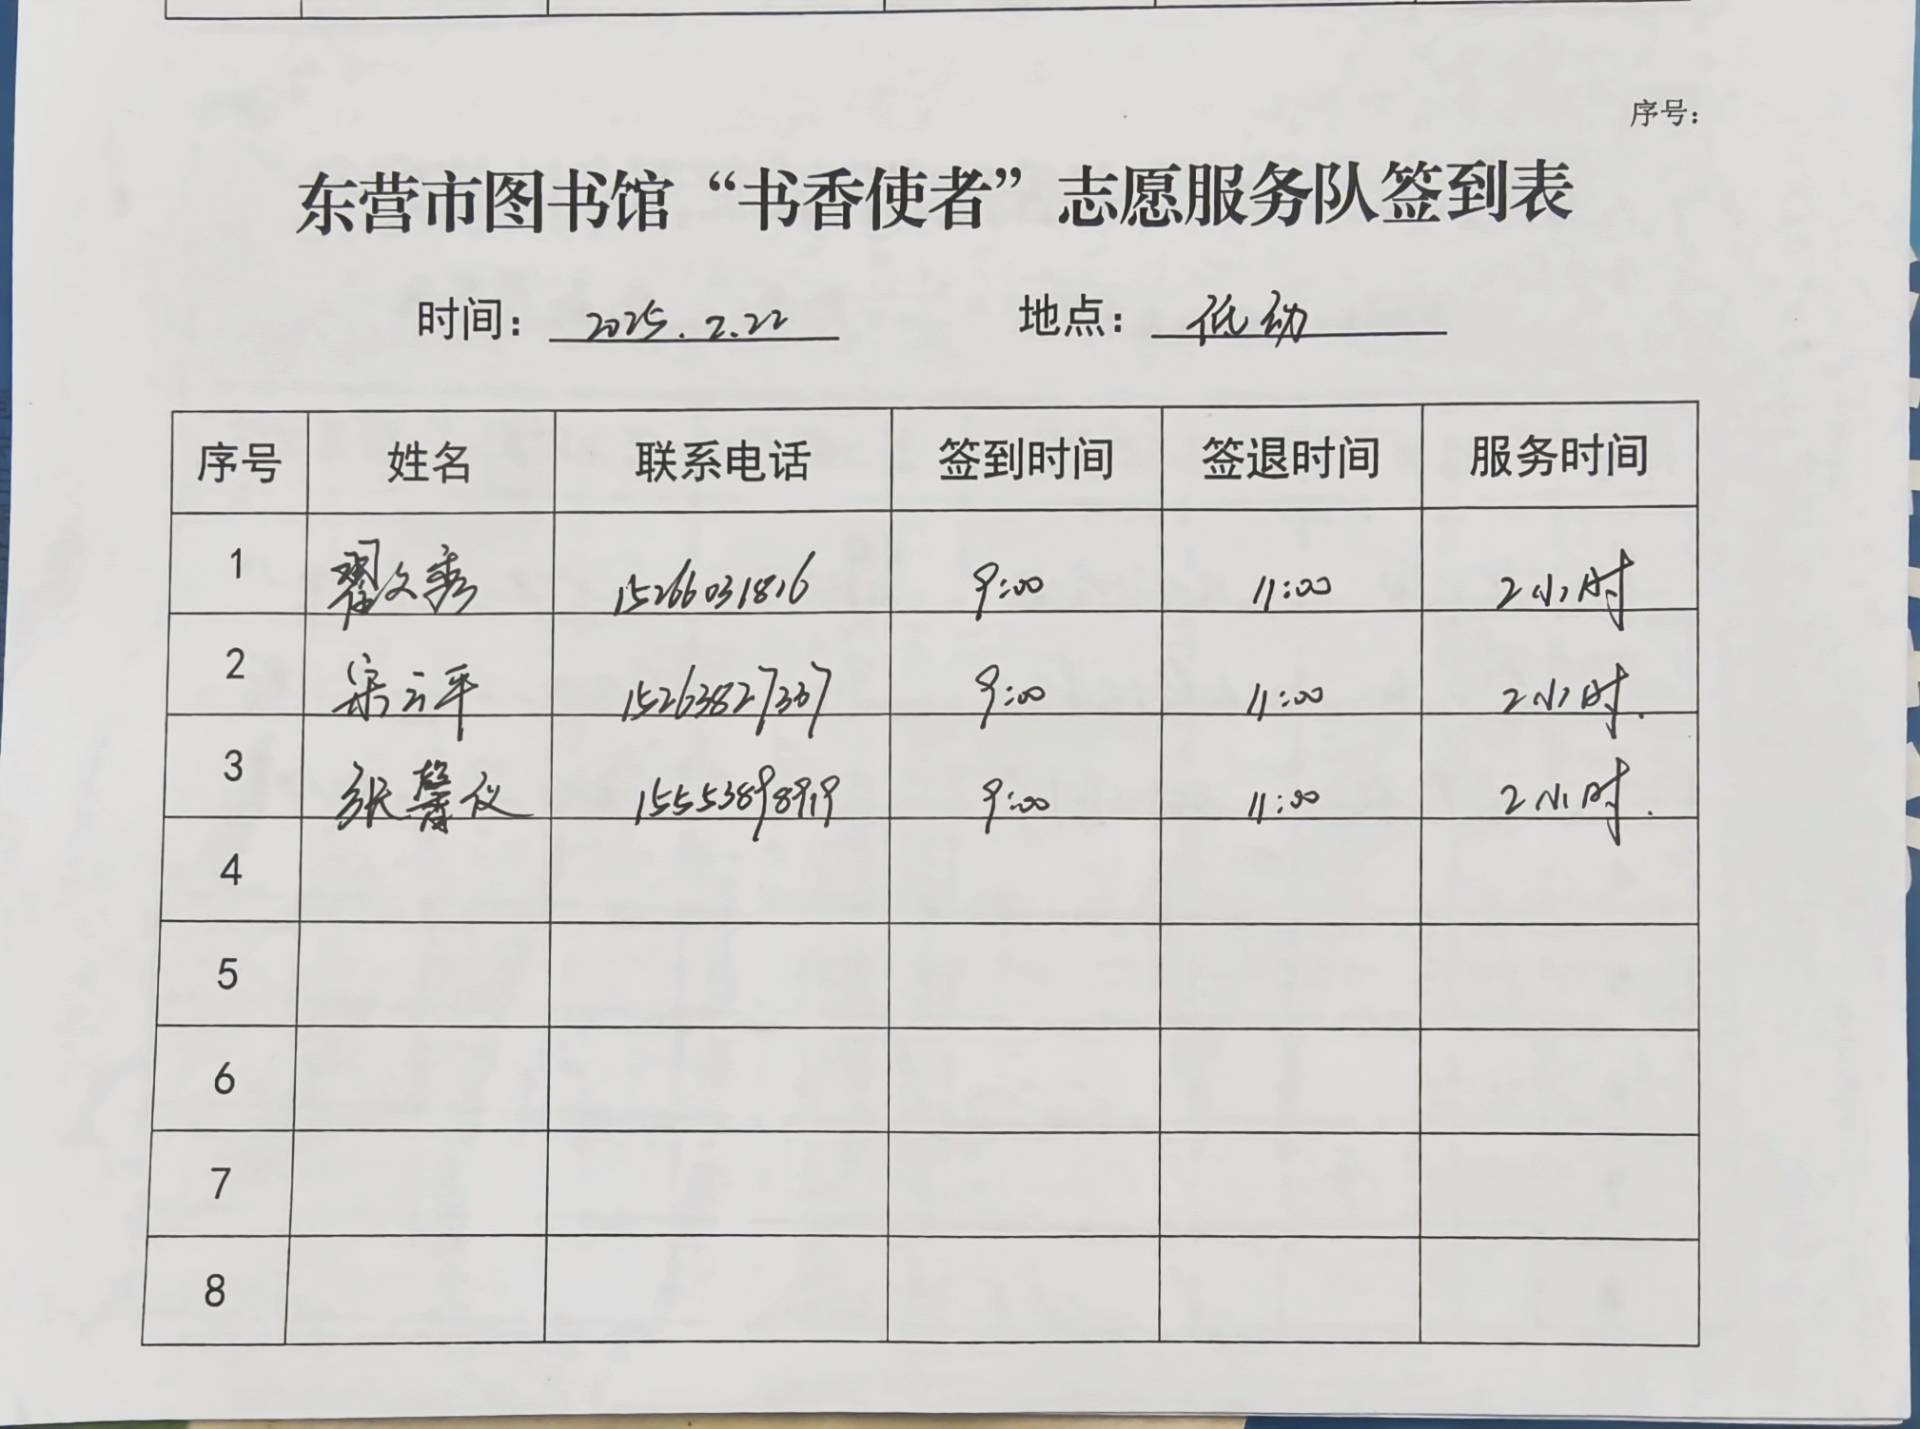 序号：
东营市图书馆“书香使者”志愿服务队签到表
时间： 2025.2.22 地点： 低幼
序号 姓名 联系电话 签到时间 签退时间 服务时间
1 翟文秀 15266031816 9:00 11:00 2小时
2 宋云平 15263827307 9:00 11:00 2小时.
3 张馨仪 15553898919 9:00 11:00 2小时.
4
5
6
7
8